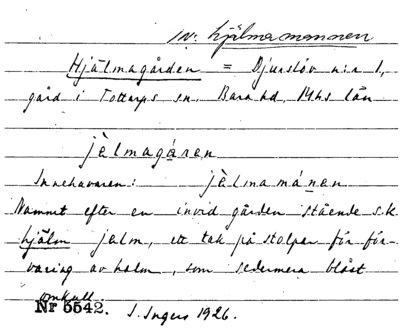 sv. hjälmamannen
Hjälmagården = Djurslöv n:r 1,
gård i Tottarps sn. Bara hd, Mhs län
jèlmagáren
Innehavaren: jèlmamánen
Namnet efter en invid gården stående s.k.
hjälm jelm, ett tak på stolpar för för-
varing av halm, som sedermera blåst
omkull
Nr 5542. I. Ingers 1926.